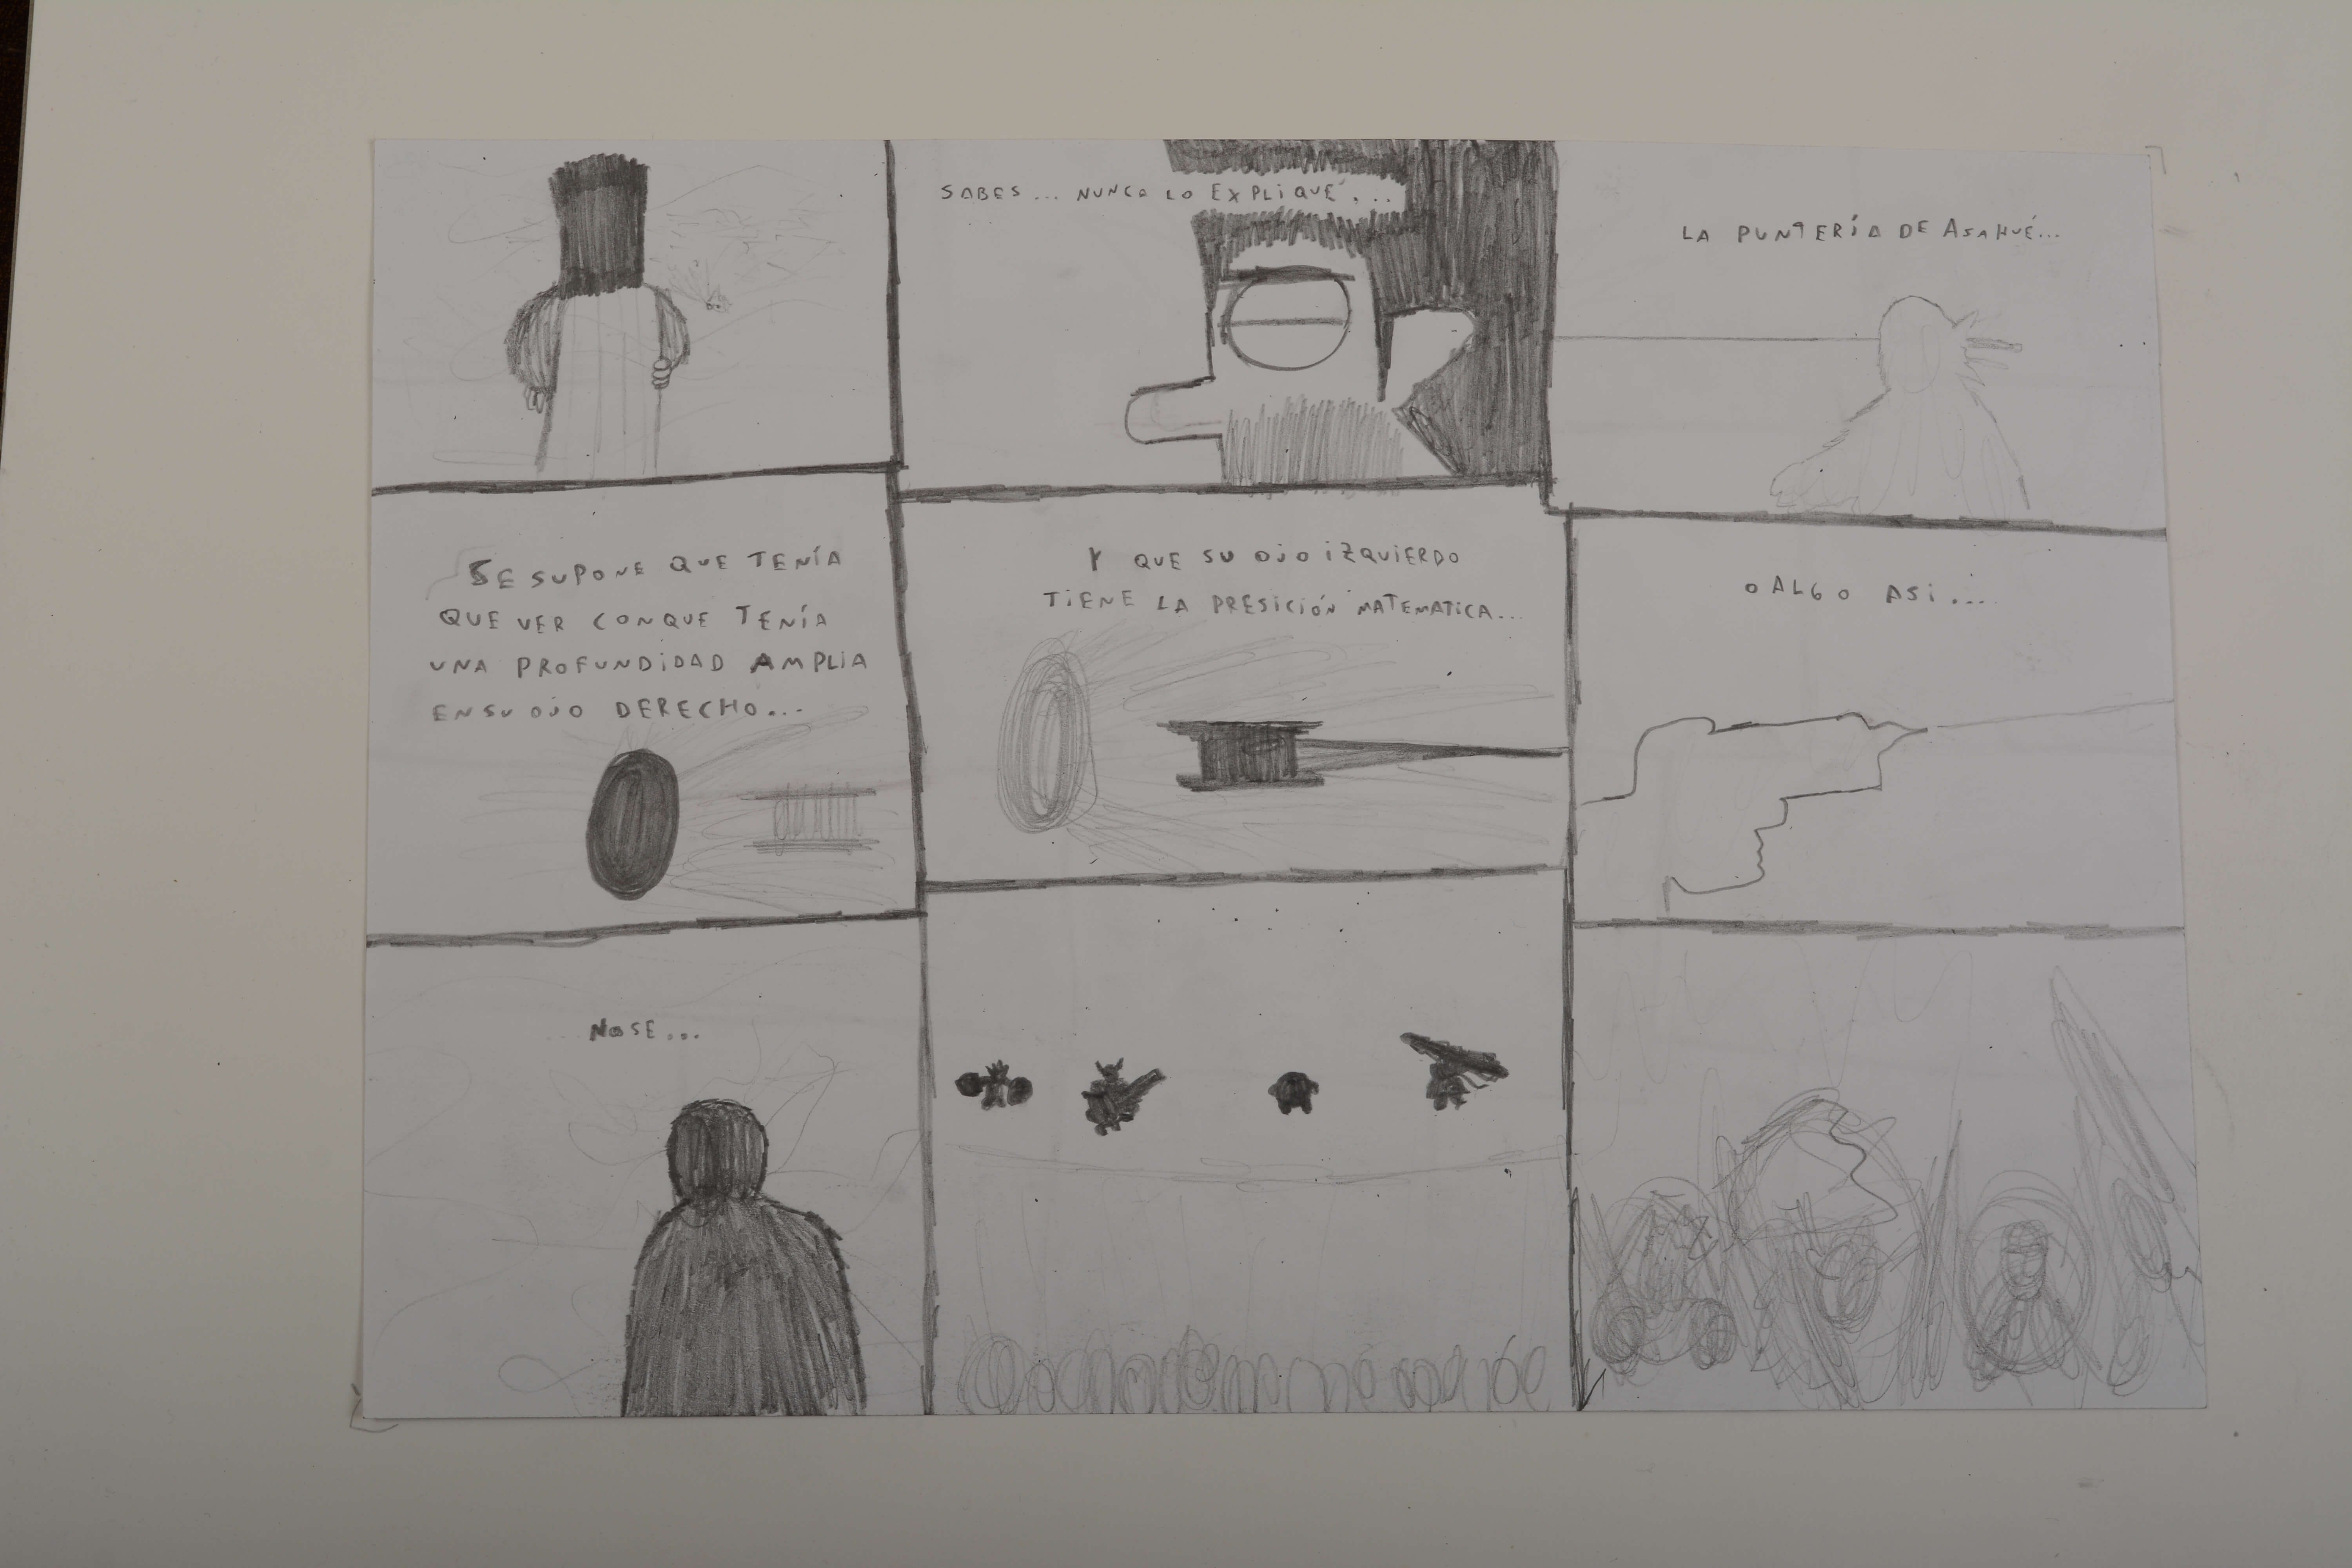 SABES... NUNCA LO EXPLIQUÉ...
LA PUNTERÍA DE ASAHUÉ...
SE SUPONE QUE TENÍA
QUE VER CONQUE TENÍA
UNA PROFUNDIDAD AMPLIA
EN SU OJO DERECHO...
Y QUE SU OJO IZQUIERDO
TIENE LA PRESICIÓN MATEMATICA...
O ALGO ASI...
NOSE...